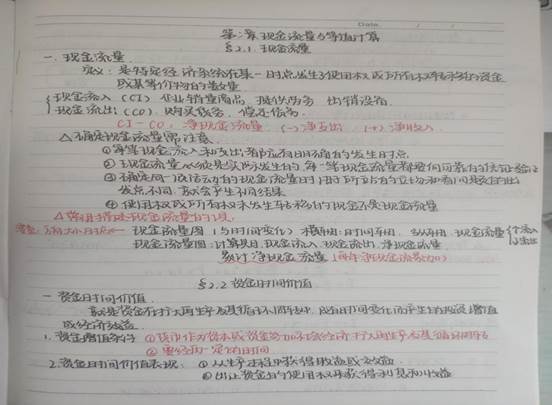 Date.
第二章 现金流量与等值计算
§2.1. 现金流量
一. 现金流量
定义: 是特定经济系统在某一时点发生了使用权或所有权转移的资金
或其等价物的数量
现金流入 (CI) 企业销售商品 提供劳务 出销设备
现金流出 (CO) 购买 偿还债务.
CI-CO: 净现金流量 (-)净支出 (+)净收入
△确定现金流量需注意
①每笔现金流入和支出都应有明确的发生时点
②现金流量必须是实际发生的, 每一笔现金流量都要有可靠的凭证验证
③确定同一经济活动的现金流量时, 因所站的立场和看问题的出
发点不同, 就会产生不同结果
④使用权或所有权未发生转移的现金不是现金流量
△ 现金流量的
现金流量图 (与时间变化) 横轴: 时间 现金流量 流入 流出
现金流量 : 计算期, 现金流入 现金流出 净现金流量
累计净现金流量
§2.2 资金时间价值
一 资金时间价值
就是资金在扩大再生产及其循环周转中, 随时间变化而产生的 增值
或经济效益
1. 资金增值条件 ①货币作为资本或资金参加 经济 扩大再生产及其循环周转
②要经历一定的时间
2. 资金时间价值表现: ①从生产过程中获得收益或效益
②出让资金的使用权获得利息和收益